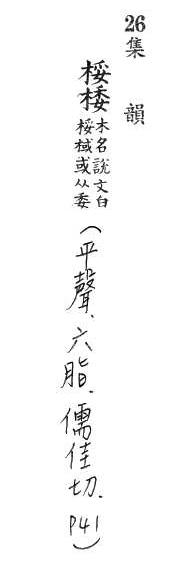 26 集韻
桵㮃 木名說文白
桵棫或从委
(平聲、六脂、儒佳切、P41)